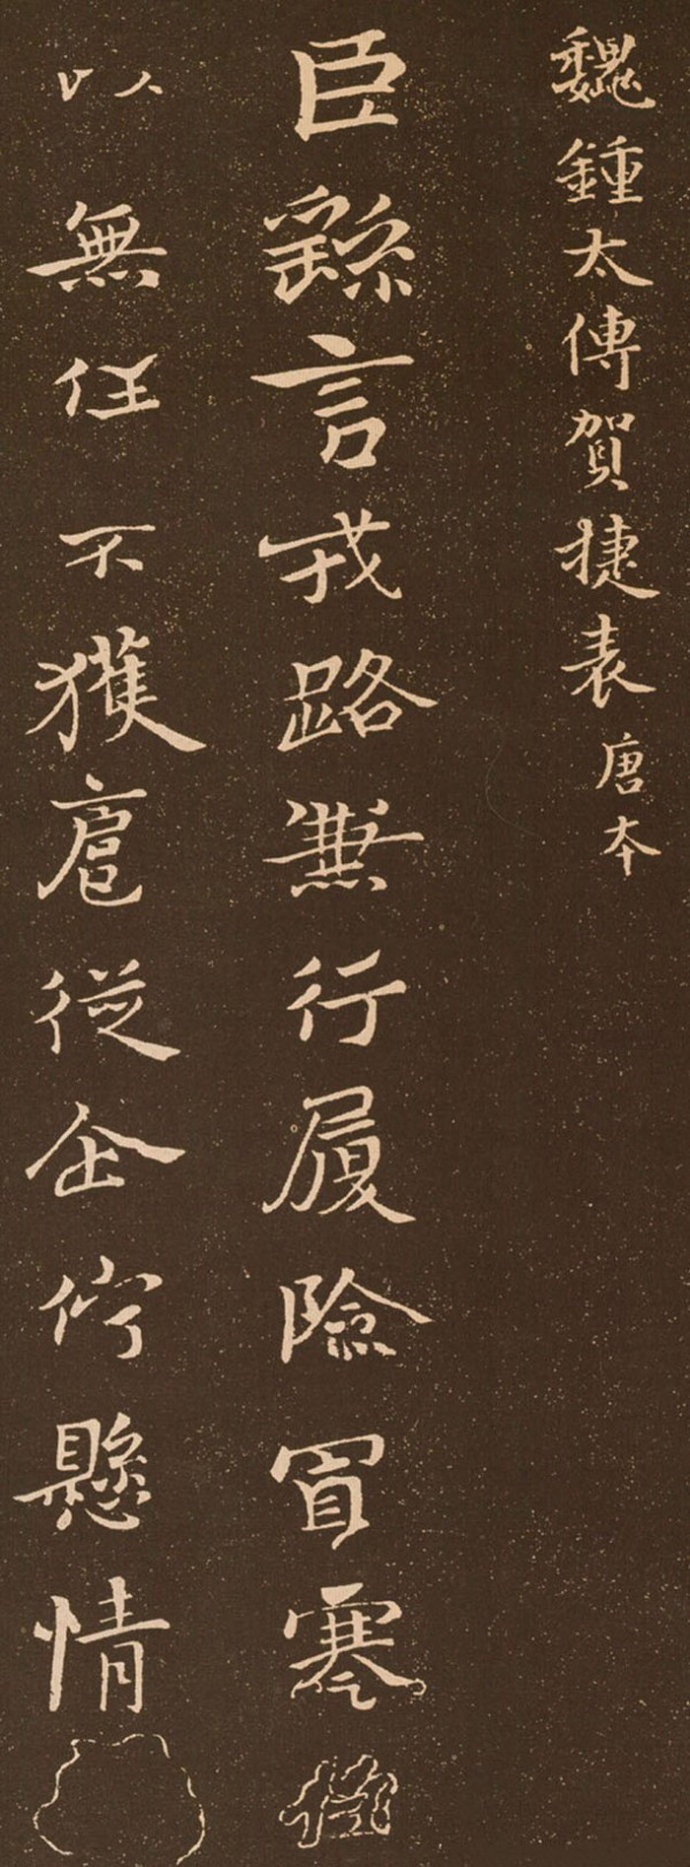 魏鍾太傅賀捷表 唐本
臣繇言戎路兼行履險冒寒臣
以無任不獲扈從企佇懸情